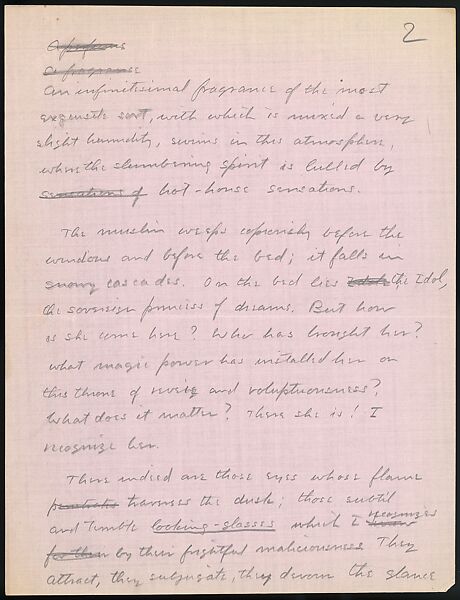 2
A perfumes
A fragrance
An infinitisimal fragrance of the most
exquisite sort, with which is mixed a very
slight humidity, swims in this atmosphere,
where the slumbering spirit is lulled by
sensations of hot-house sensations.
The muslin weeps copiously before the
windows and before the bed; it falls in
snowy cascades. On the bed lies Idol the Idol,
the sovereign princess of dreams. But how
is she come here? Who has brought her?
what magic power has installed her on
this throne of revery and voluptuousness?
What does it matter? There she is! I
recognize her.
There indeed are those eyes whose flame
traverses the dusk; those subtil
and terrible looking-glasses which I recognize
for their by their frightful maliciousness They
attract, they subjugate, they devour the glance